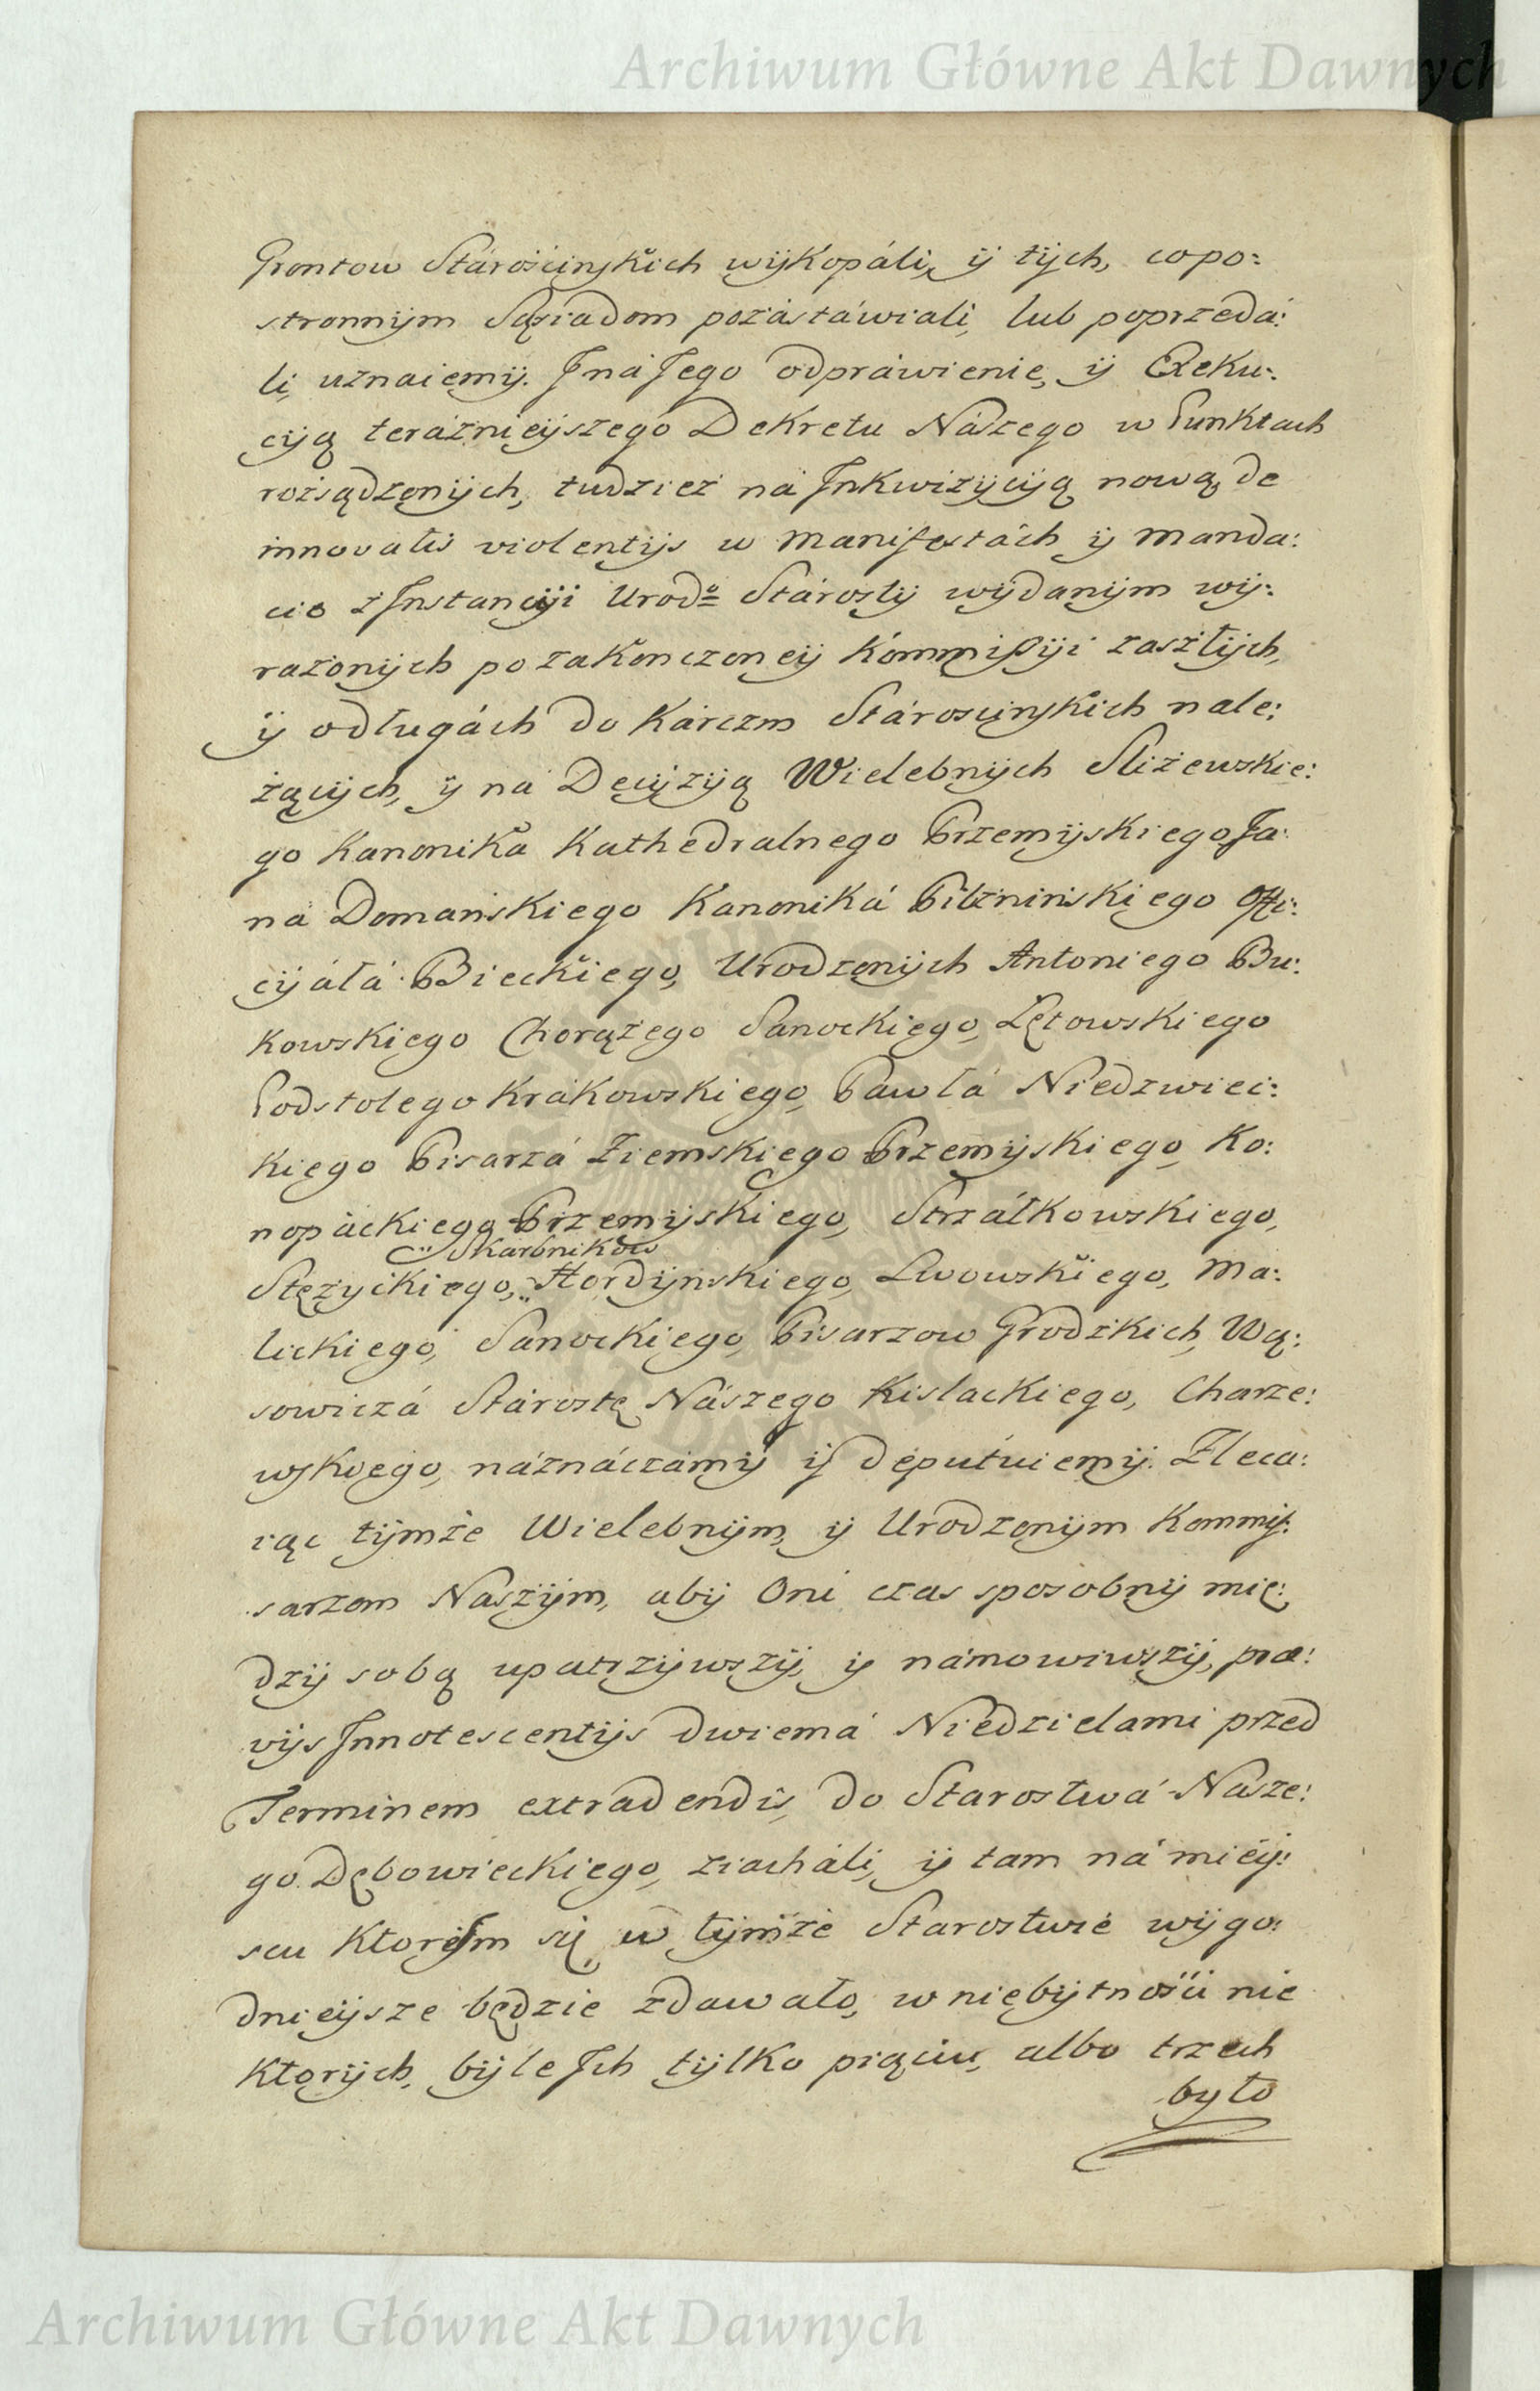 Archiwum Główne Akt Dawnych
Grontow Stárościnskich wÿkopáli, ÿ tÿch, co po:
stronnÿm Sąsiadom pozástáwiali, lub poprzedá:
li, uznaiemÿ. J ná Jego odpráwienie, ÿ Exeku:
cÿą teráznieÿszego Dekretu Nászego w Punktach
rozsądzonÿch, tudziez ná Jnkwizÿcÿą nową de
innovatis violentÿs w Manifestách ÿ Manda:
cie z Jnstancÿi Urodo Stárostÿ wÿdanÿm wÿ:
rażonÿch po zakonczoneÿ Kommissÿi zaszłÿch,
ÿ odługách do Kárczm Stároscinskich nale:
żącÿch, ÿ ná Decÿzÿą Wielebnÿch Sliżewskie:
go Kanonika Kathedralnego Przemÿskiego Ja:
ná Domanskiego Kanoniká Pilznińskiego Offi:
cÿáłá Bieckiego, Urodzonÿch Antoniego Bu:
kowskiego Chorążego Sanockiego, Łętowskiego
Podstolego Krákowskiego, Páwłá Niedzwiec:
kiego Pisarzá Ziemskiego Przemÿskiego, Ko:
nopáckiego Przemÿskiego, Strzáłkowskiego,
Skarbnikow
Stężyckiego, Hordÿnskiego, Lwowskiego, Ma:
lickiego, Sanockiego, Pisarzow Grodzkich, Wą:
sowiczá Stárostę Nászego Kislackiego, Charze:
wskiego, náznáczámÿ ÿ deputuiemÿ. Zleca:
iąc tÿmże Wielebnÿm, ÿ Urodzonÿm Kommis:
sarzom Naszÿm, abÿ Oni czas sposobnÿ mię:
dzÿ sobą upatrzÿwszÿ, ÿ námowiwszÿ, præ:
vÿs Jnnotescentÿs dwiemá Niedzielami przed
Terminem extradendis, do Starostwá Násze:
go Dębowieckiego, ziacháli, ÿ tam ná mieÿ:
scu ktorÿm się w tÿmże Starostwie wÿgo:
dnieÿsze będzie zdawało, w niebÿtności nie
ktorÿch, bÿle Jch tÿlko pięciu, albo trzech
było
Archiwum Główne Akt Dawnych